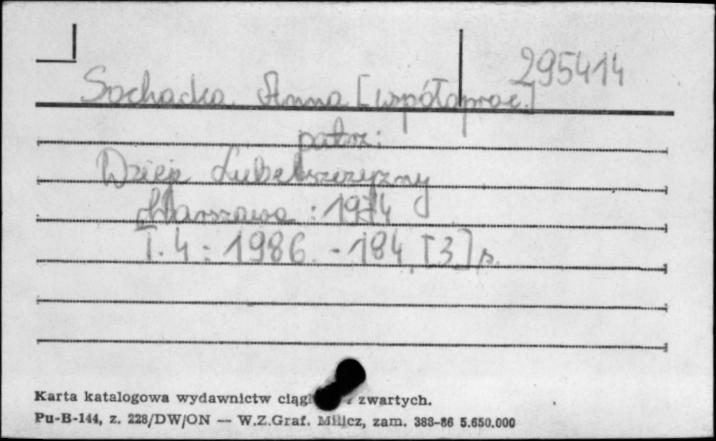 295414
Sochacka Anna [współaprac.]
patrz:
Dzieje Lubelszczyzny
Warszawa : 1974
T. 4 : 1986. - 184, [3] s.
Karta katalogowa wydawnictw zwartych.
Pu-B-144, z. 228/DW/ON — W.Z.Graf. Milicz, zam. 388-86 5.650.000